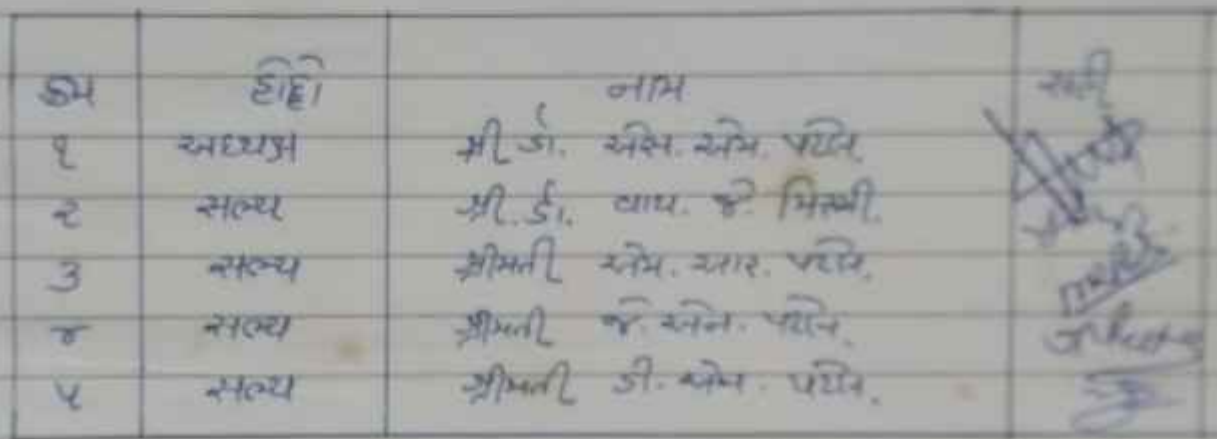 ક્રમ હોદ્દો નામ સહી
૧ અધ્યક્ષ શ્રી ડૉ. એસ. એમ. પટેલ.
૨ સભ્ય શ્રી. ડૉ. વાય. જે. મિસ્ત્રી.
૩ સભ્ય શ્રીમતી એમ. આર. પટેલ.
૪ સભ્ય શ્રીમતી જે. એન. પટેલ.
૫ સભ્ય શ્રીમતી ડી. એમ. પટેલ.